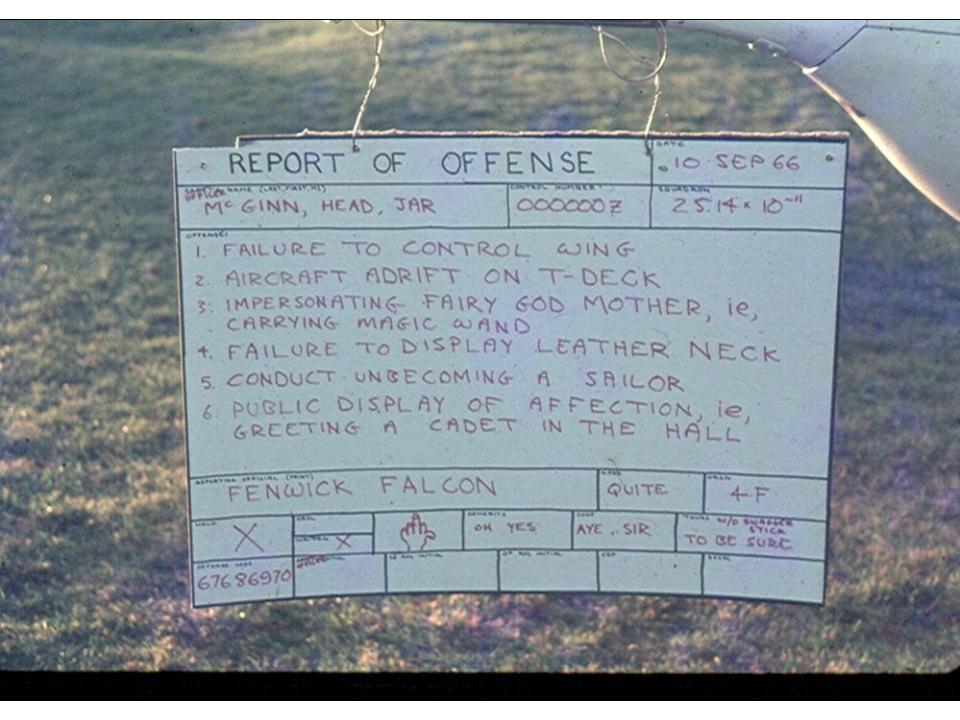 REPORT OF OFFENSE
DATE
10 SEP 66
OFFICER NAME (LAST, FIRST, MI)
CONTROL NUMBER
SQUADRON
Mc GINN, HEAD, JAR
000000Z
25.14 x 10⁻¹¹
OFFENSE:
1. FAILURE TO CONTROL WING
2. AIRCRAFT ADRIFT ON T-DECK
3. IMPERSONATING FAIRY GOD MOTHER, ie,
CARRYING MAGIC WAND
4. FAILURE TO DISPLAY LEATHER NECK
5. CONDUCT UNBECOMING A SAILOR
6. PUBLIC DISPLAY OF AFFECTION, ie,
GREETING A CADET IN THE HALL
REPORTING OFFICIAL (PRINT)
FENWICK FALCON
QUITE
4-F
X
WRITTEN X
DEMERITS
OH YES
CONF
AYE, SIR
TOURS W/O SWAGGER
STICK
TO BE SURE
OFFENSE CODE
67686970